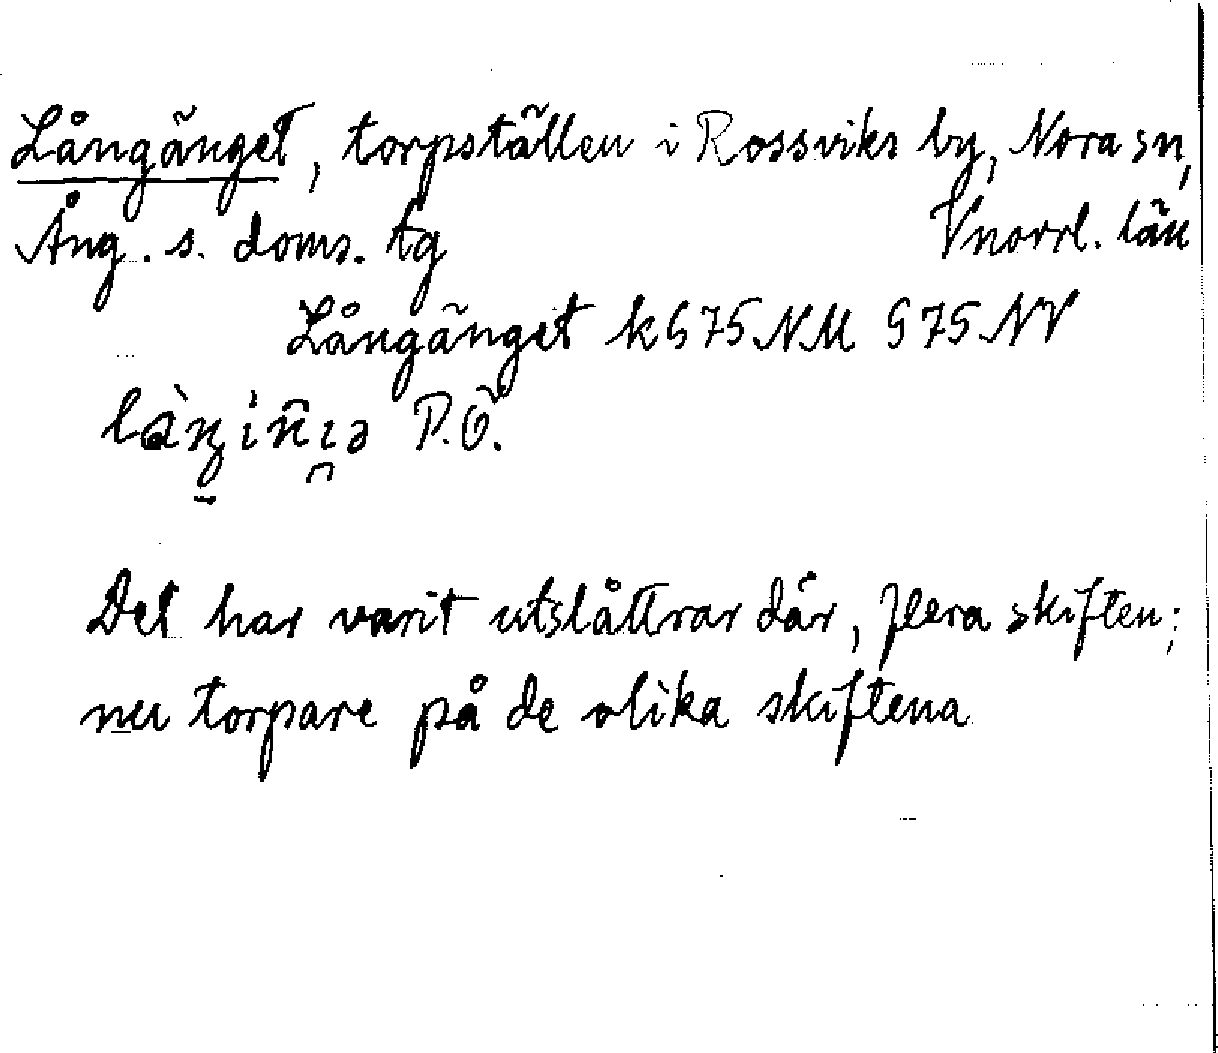 Långänget, torpställen i Rossviks by, Nora sn,
Ång. s. doms. tg Vnorrl. län
Långänget k 675 NM 575 NV
P.Ö.
Det har varit utslåttrar där, flera skiften;
nu torpare på de olika skiftena